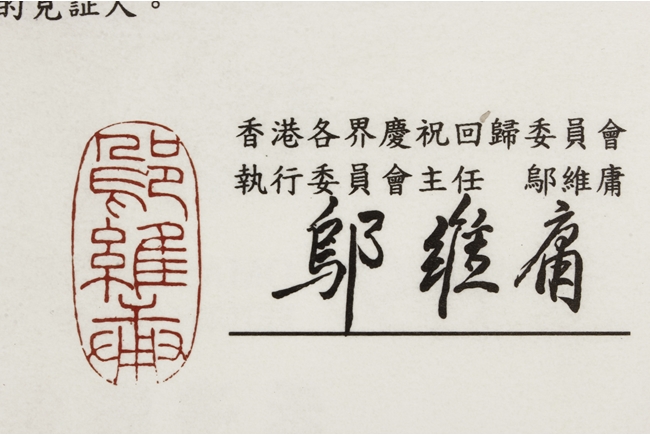 的見証人。
香港各界慶祝回歸委員會
執行委員會主任 鄔維庸
鄔維庸
鄔維庸